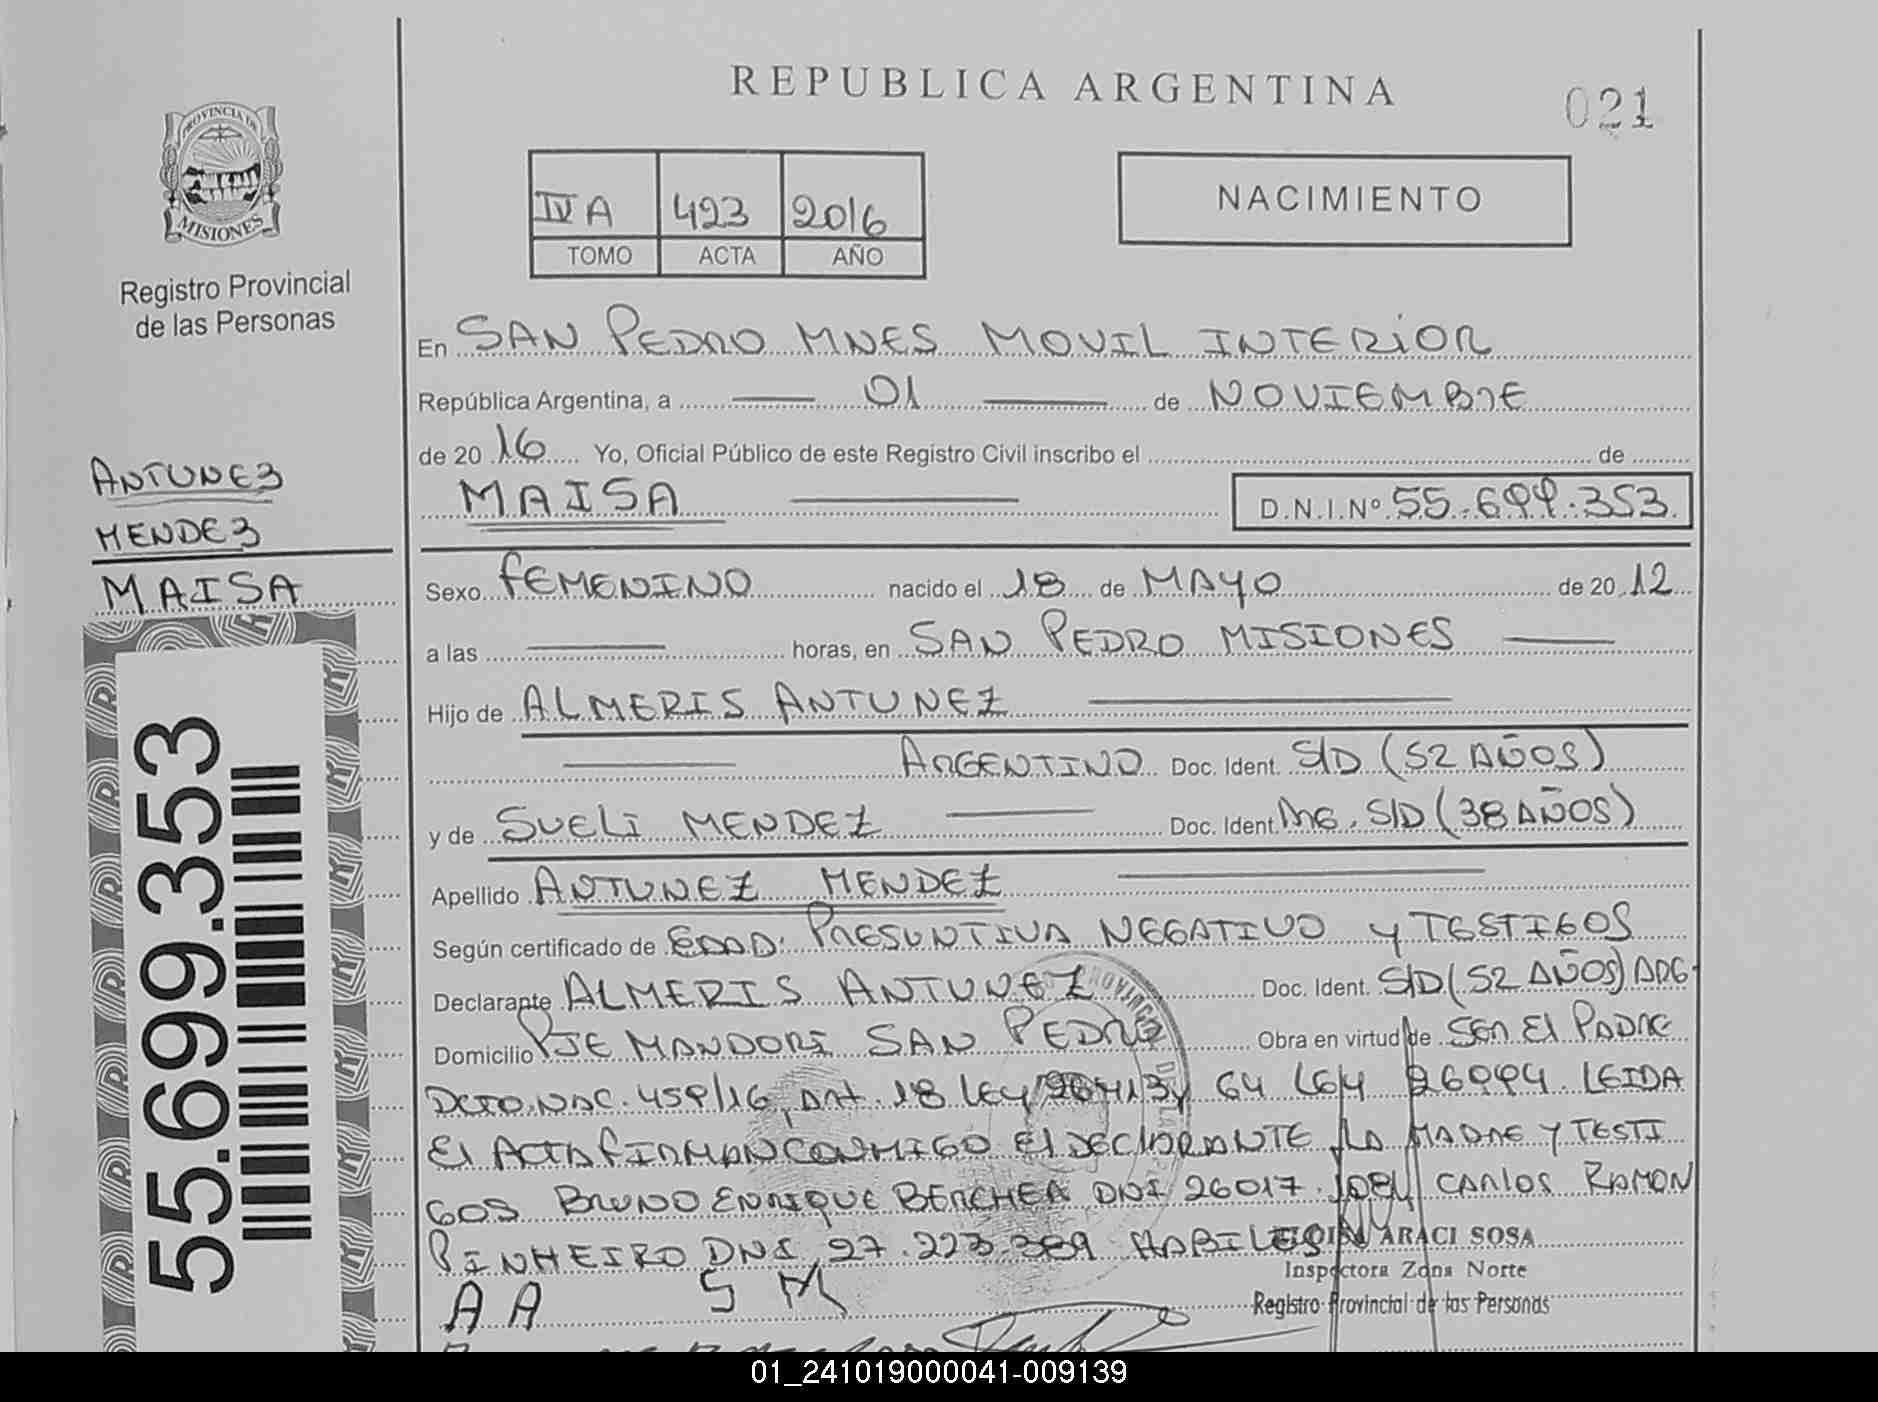 REPUBLICA ARGENTINA
021
PROVINCIA DE
MISIONES
Registro Provincial
de las Personas
IV A 423 2016
TOMO ACTA AÑO
NACIMIENTO
En SAN PEDRO MNES MOVIL INTERIOR
República Argentina, a 01 de NOVIEMBRE
de 20 16 Yo, Oficial Público de este Registro Civil inscribo el de
MAISA D.N.I.Nº 55.699.353
ANTUNEZ
MENDEZ
MAISA
Sexo FEMENINO nacido el 18 de MAYO de 20 12
a las horas, en SAN PEDRO MISIONES
Hijo de ALMERIS ANTUNEZ
ARGENTINO Doc. Ident. S/D (52 AÑOS)
y de SUELI MENDEZ Doc. Ident. ARG. S/D (38 AÑOS)
Apellido ANTUNEZ MENDEZ
Según certificado de EDAD PRESUNTIVA NEGATIVO Y TESTIGOS
Declarante ALMERIS ANTUNEZ Doc. Ident. S/D (52 AÑOS) ARG
Domicilio PJE MANDORI SAN PEDRO Obra en virtud de SER El PADRE
DCTO.NAC. 459/16, Art. 18 LEY 26413 y 64 LEY 26994. LEIDA
El ACTA FIRMAN CONMIGO El DEClARANTE, LA MADRE Y TESTI
GOS BRUNO ENRIQUE BERCHEA DNI 26017. CARlOS RAMON
PINHEIRO DNI 27.223.389 HABILES
ARACI SOSA
Inspectora Zona Norte
Registro Provincial de las Personas
A A S M
55.699.353
01_241019000041-009139